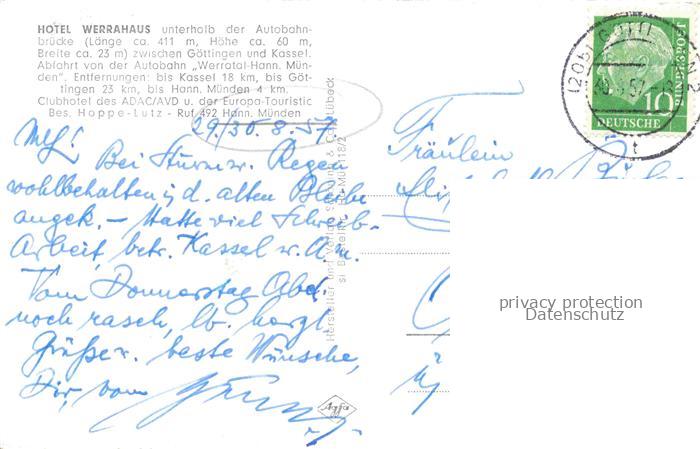 HOTEL WERRAHAUS unterhalb der Autobahn-
brücke (Länge ca. 411 m, Höhe ca. 60 m,
Breite ca. 23 m) zwischen Göttingen und Kassel.
Abfahrt von der Autobahn „Werratal-Hann. Mün-
den". Entfernungen: bis Kassel 18 km, bis Göt-
tingen 23 km, bis Hann. Münden 4 km.
Clubhotel des ADAC/AVD u. der Europa-Touristic
Bes. Hoppe-Lutz - Ruf 492 Hann. Münden
29./30. 8. 57
Bei Sturm u. Regen
wohlbehalten i. d. alten Bleibe
angek. – Hatte viel Schreib-
Arbeit, betr. Kassel u. A. m.
Vom Donnerstag Abd.
noch rasch, lb. herzl.
Grüße u. beste Wünsche,
Dir, vom
Agfa
Hersteller und Verlag
Fräulein
10
DEUTSCHE
BUNDESPOST
privacy protection
Datenschutz